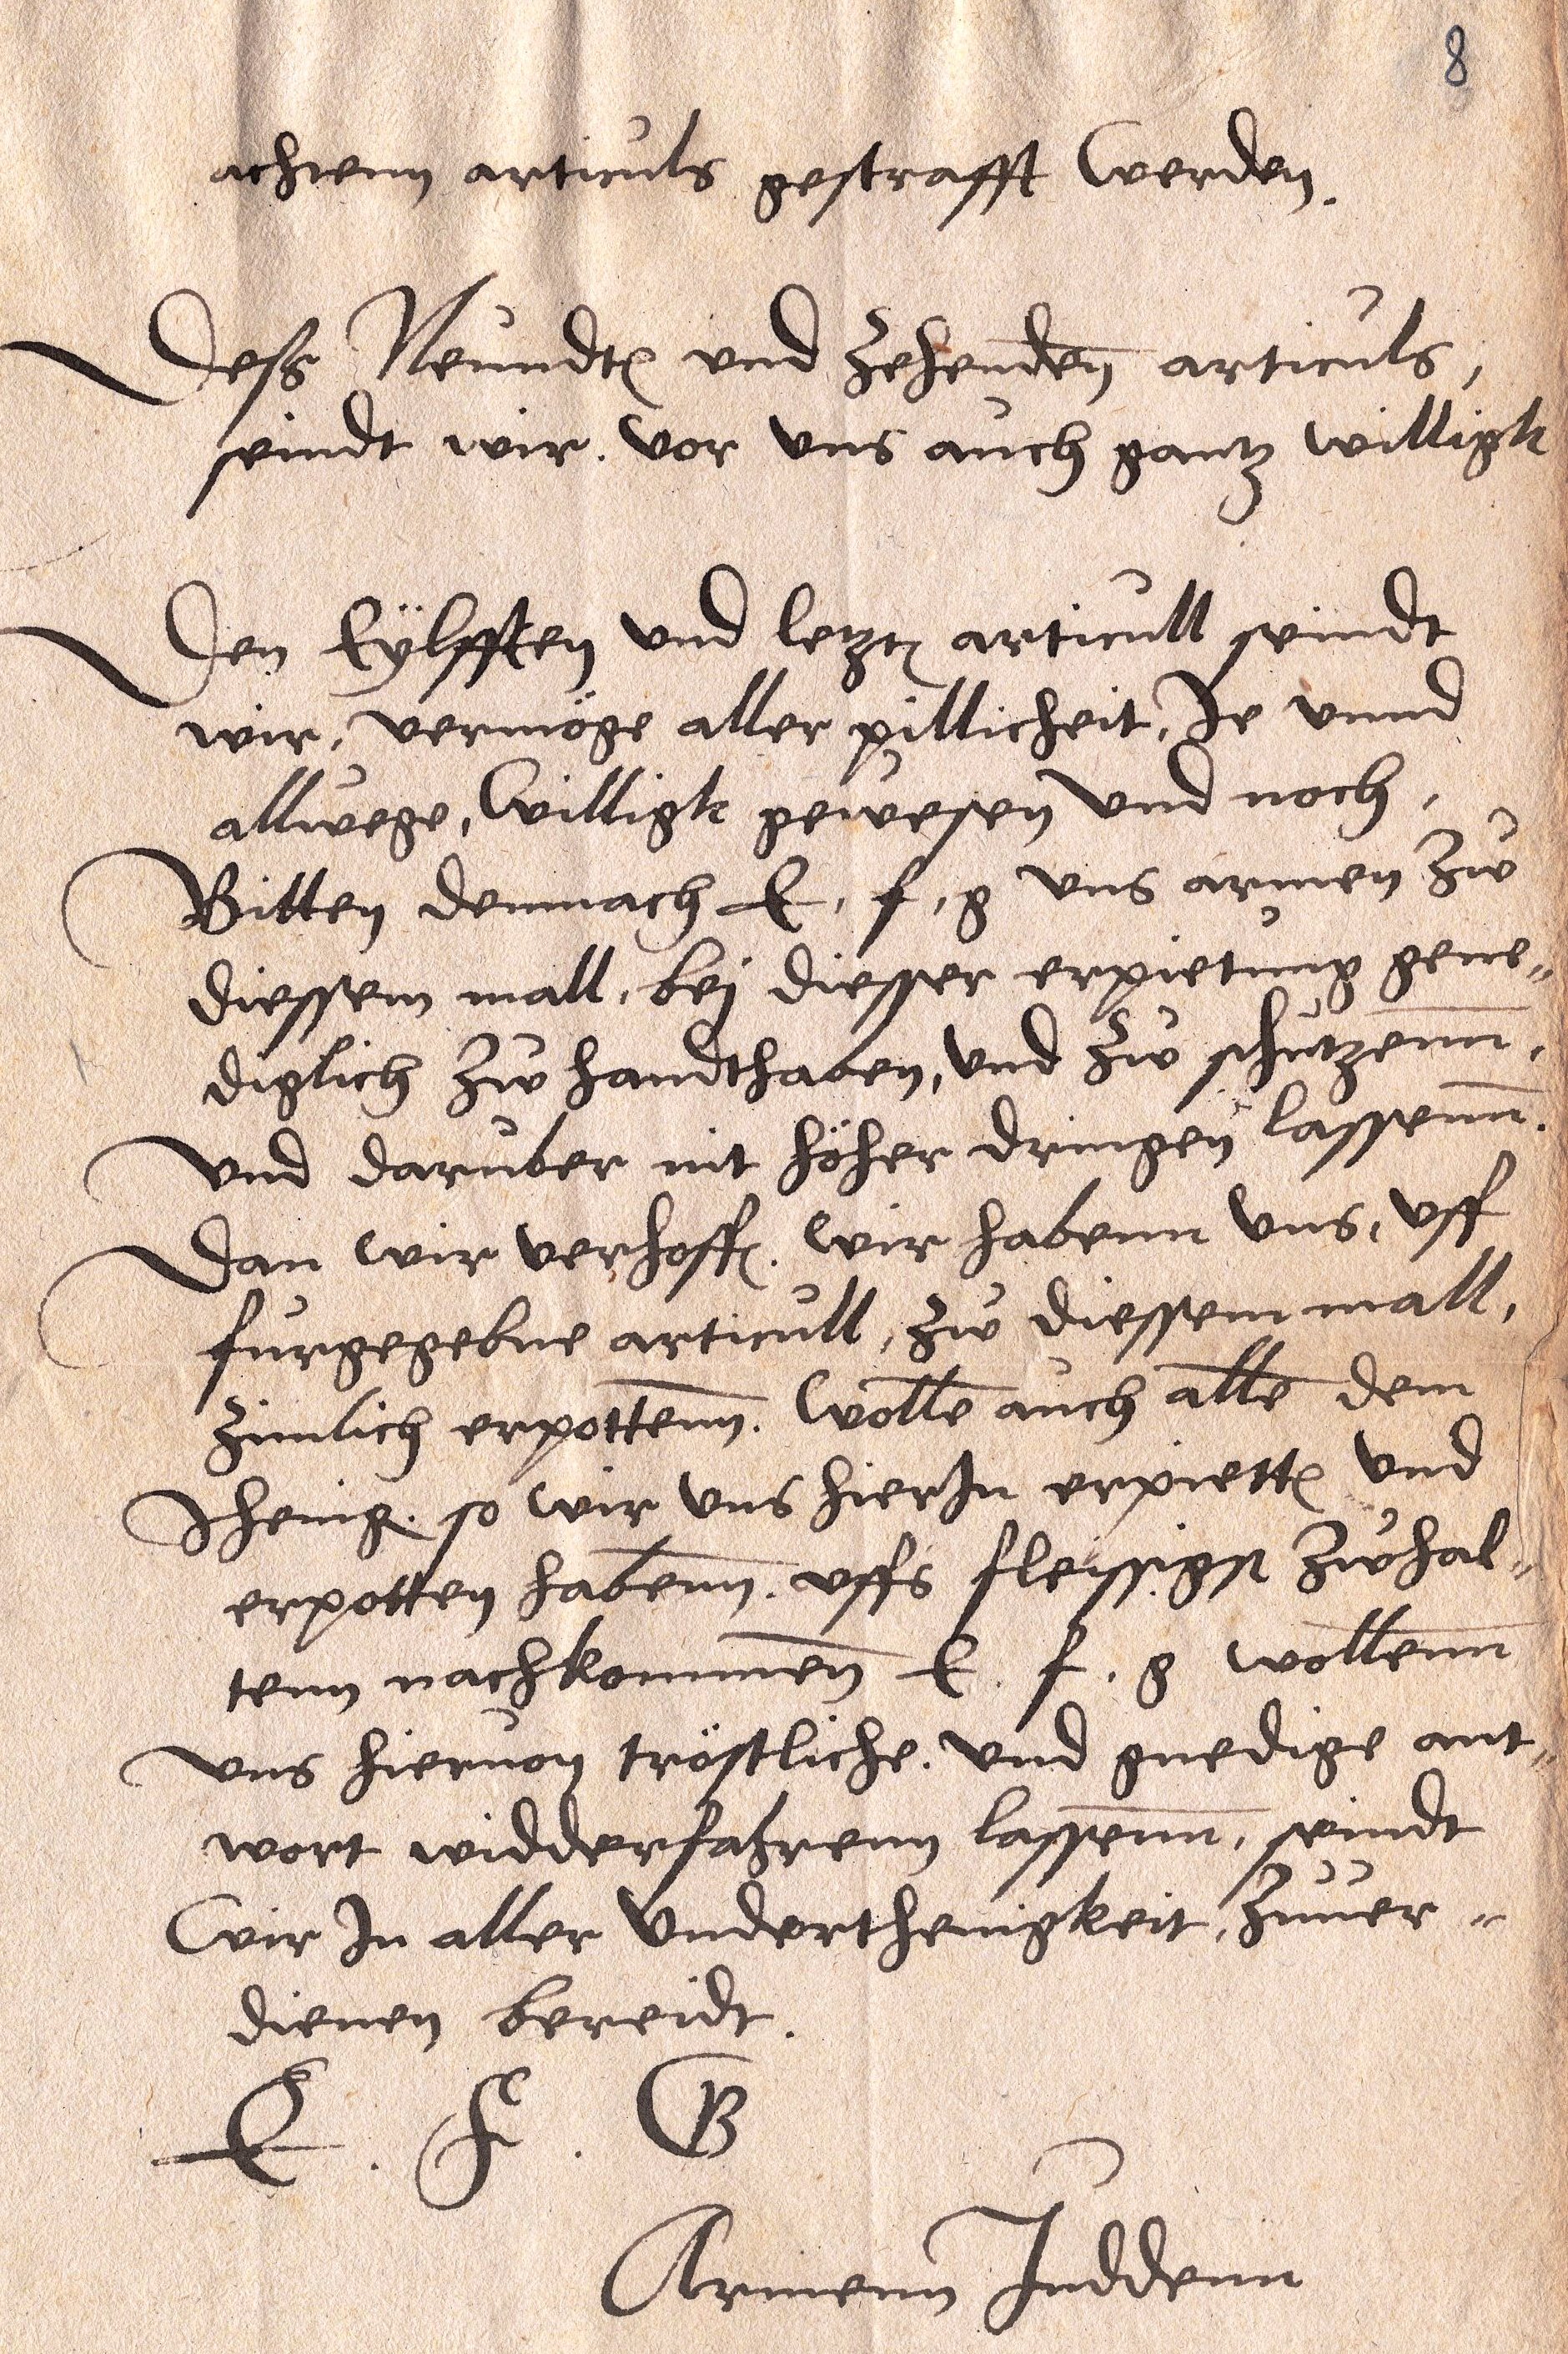 8
achtenn articuls gestrafft werden.
Deß Neundt(en) vnd Zehendenn articuls,
seindt wir. vor vns auch gantz willigk
Den Eÿlfften vnd letzt(en) articull seindt
wir, vermöge aller pillicheit, Je vnnd
allwege, willigk gewesen vnd noch,
Bitten demnach E, f, g vns armen Zw
diessem mall, bej diesser erpietung gene„
diglich Zw handthaben, vnd Zw schutzenn,
vnd daruber nit höher dringen lassenn.
Dan wir verhoff(en). wir habenn vns, vff
furgegebne articull, Zw diessem mall,
Zimlich erpottenn. Wolle auch alle dem
Jhenig(en). so wir vns hierIn erpiett(en) vnd
erpotten habenn. vffs fleissigst Zwhal„
tenn nachkommen E. f. g wollenn
vns hieruon tröstliche. vnd gnedige ant„
wort widderfahrenn lassenn, seindt
wir In aller Vnderthenigkeit, Zuuer„
dienen bereidt.
E. F. G
Armenn Juddenn